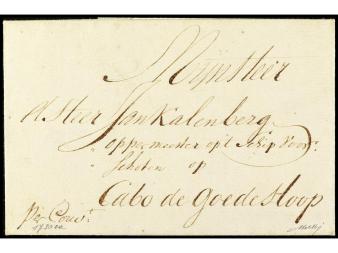 Mÿn Heer
d'Heer Jan Kalenberg
oppermeester op't Schip Voor
schoten op
Cabo de Goede Hoop
Per Couvt